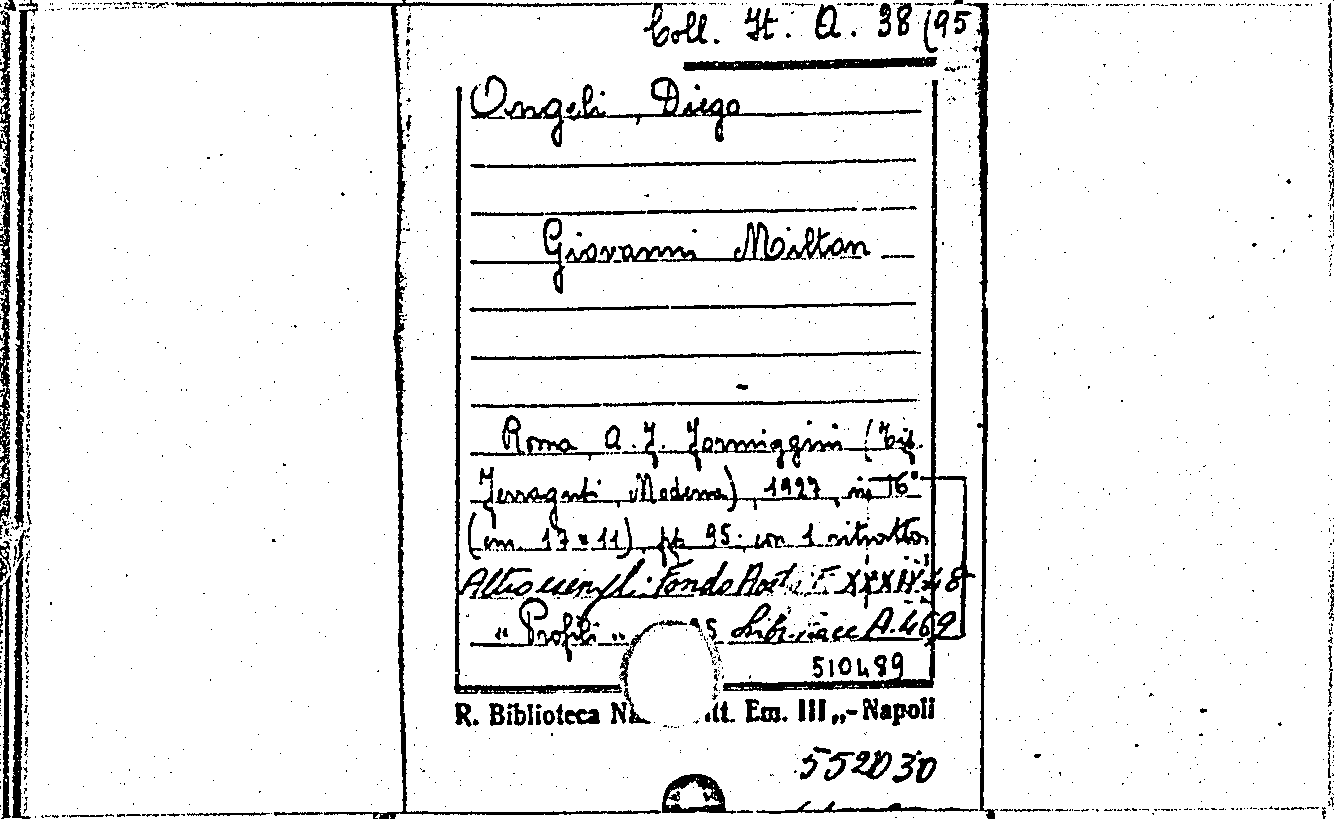 Coll. It. A. 38 (95
Angeli, Diego
Giovanni Milton
Roma, A. F. Formiggini (Tip.
Ferraguti, Modena), 1927, in 16°
(cm. 17 x 11), pp. 95. con 1 ritratto
Altro esempl: Fondo Aost. F. XXXIV 48
" Profili " 95 A. 469
510489
R. Biblioteca Em. III „- Napoli
552030